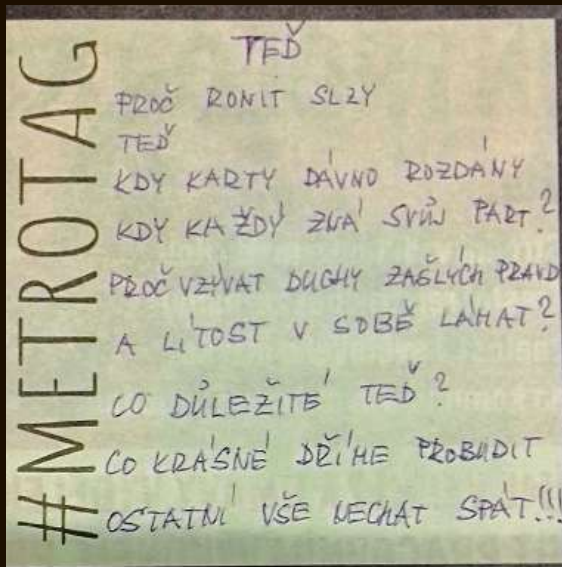 #METROTAG
TEĎ
PROČ RONIT SLZY
TEĎ
KDY KARTY DÁVNO ROZDÁNY
KDY KAŽDÝ ZNÁ SVŮJ PART?
PROČ VZÝVAT DUCHY ZAŠLÝCH PRAVD
A LÍTOST V SOBĚ LÁHAT?
CO DŮLEŽITÉ TEĎ?
CO KRÁSNÉ DŘÍME PROBUDIT
OSTATNÍ VŠE NECHAT SPÁT!!!